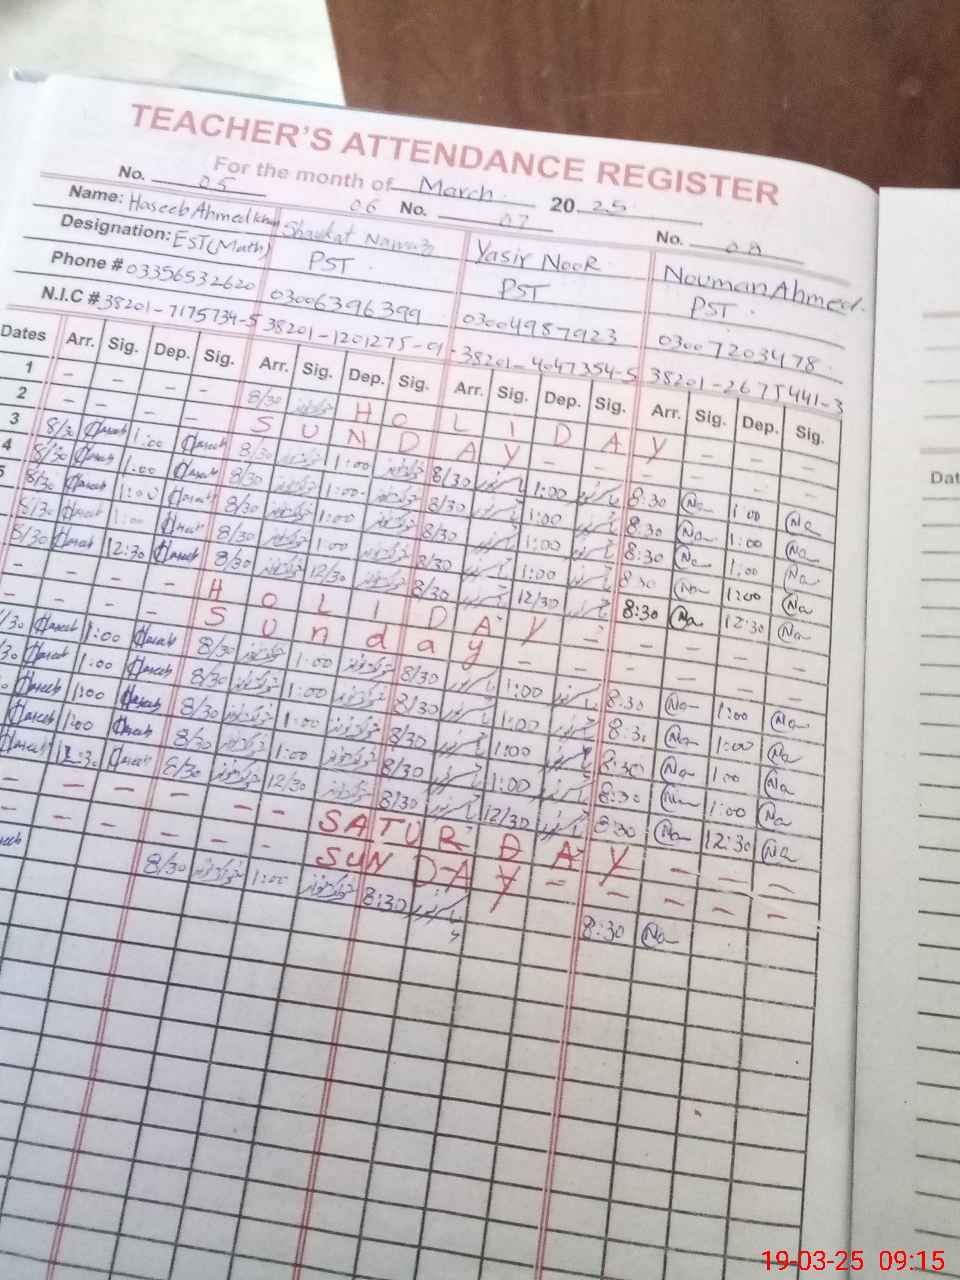 TEACHER'S ATTENDANCE REGISTER
For the month of March 2025
No. 05 06 No. 07 No. 08
Name: Haseeb Ahmed Khan Shaukat Nawaz Yasir NooR Nouman Ahmed.
Designation: EST(Math) PST. PST PST.
Phone # 03356532620 03006396399 03004987923 03007203478
N.I.C # 38201-7175734-5 38201-1201275-9 38201-4047354-5 38201-2675441-3
Dates Arr. Sig. Dep. Sig. Arr. Sig. Dep. Sig. Arr. Sig. Dep. Sig. Arr. Sig. Dep. Sig.
1 - - - - 8/30 H O L I D A Y - - -
2 - - - - S U N D A Y - - - - -
3 8/30 Haseeb 1:00 Haseeb 8/30 1:00 8/30 1:00 8:30 Na 1:00 Na
4 8/30 Haseeb 1:00 Haseeb 8/30 1:00 8/30 1:00 8:30 Na 1:00 Na
5 8/30 Haseeb 1:00 Haseeb 8/30 1:00 8/30 1:00 8:30 Na 1:00 Na
8/30 Haseeb 1:00 Haseeb 8/30 1:00 8/30 1:00 8:30 Na 1:00 Na
8/30 Haseeb 12:30 Haseeb 8/30 12/30 8/30 12/30 8:30 Na 12:30 Na
- - - - H O L I D A Y - - - - -
- - - - S U n d a y - - - - - -
/30 Haseeb 1:00 Haseeb 8/30 1:00 8/30 1:00 8:30 Na 1:00 Na
30 Haseeb 1:00 Haseeb 8/30 1:00 8/30 1:00 8:30 Na 1:00 Na
Haseeb 1:00 Haseeb 8/30 1:00 8/30 1:00 8:30 Na 1:00 Na
Haseeb 1:00 Haseeb 8/30 1:00 8/30 1:00 8:30 Na 1:00 Na
Haseeb 12:30 Haseeb 8/30 12/30 8/30 12/30 8:30 Na 12:30 Na
- - - - - - SATURDAY - - -
- - - - - SUNDAY - - - - -
8/30 1:00 8:30 8:30 Na
Dat
19-03-25 09:15